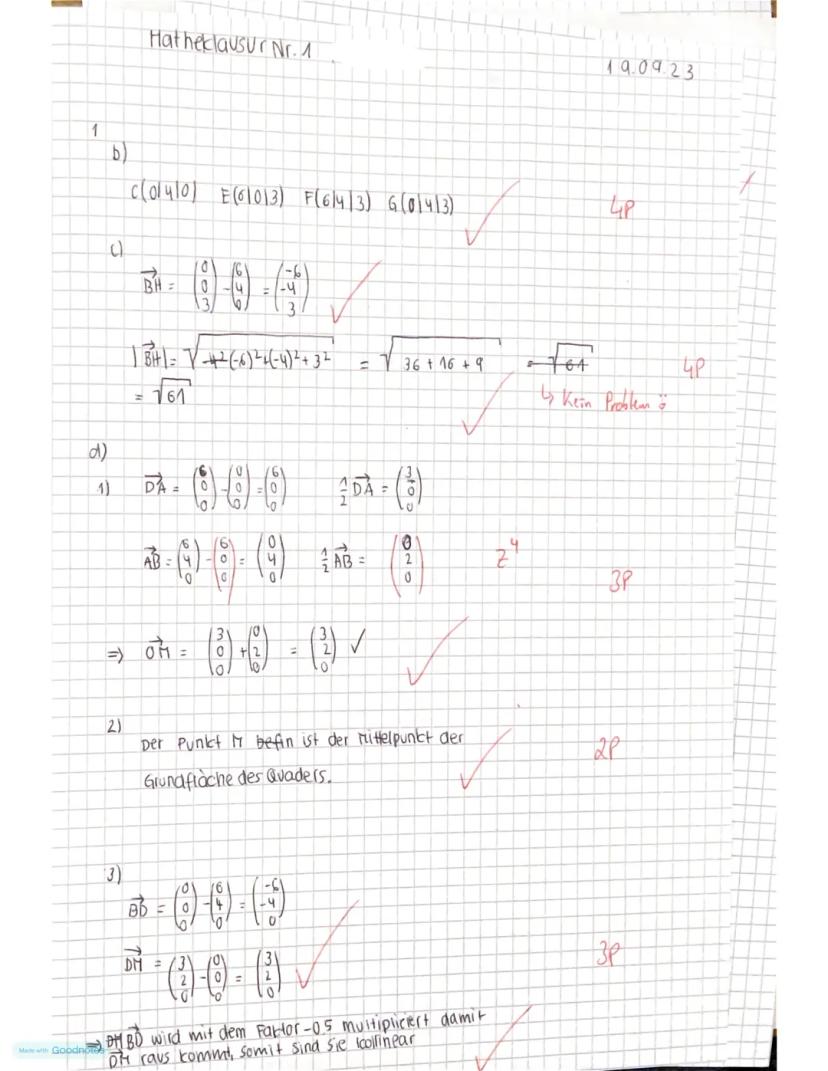 Matheklausur Nr. 1
19.09.23
1
b)
C(0|4|0) E(6|0|3) F(6|4|3) G(0|4|3) 4P
c)
BH→ = (0 0 3) - (6 4 0) = (-6 -4 3)
|BH→| = √(-6)²+(-4)²+3² = √36 + 16 + 9 = √61 4P
= √61 ↳ Kein Problem ö
d)
1) DA→ = (6 0 0) - (0 0 0) = (6 0 0) 1/2 DA→ = (3 0 0)
AB→ = (6 4 0) - (6 0 0) = (0 4 0) 1/2 AB→ = (0 2 0) z4
3P
⇒ OM→ = (3 0 0) + (0 2 0) = (3 2 0) ✓
2)
Der Punkt M befin ist der Mittelpunkt der 2P
Grundfläche des Quaders.
3)
BD→ = (0 0 0) - (6 4 0) = (-6 -4 0)
DM→ = (3 2 0) - (0 0 0) = (3 2 0) 3P
⇒ DM BD→ wird mit dem Faktor -0.5 multipliciert damit
DM→ raus kommt, somit sind sie kollinear
Made with Goodnotes